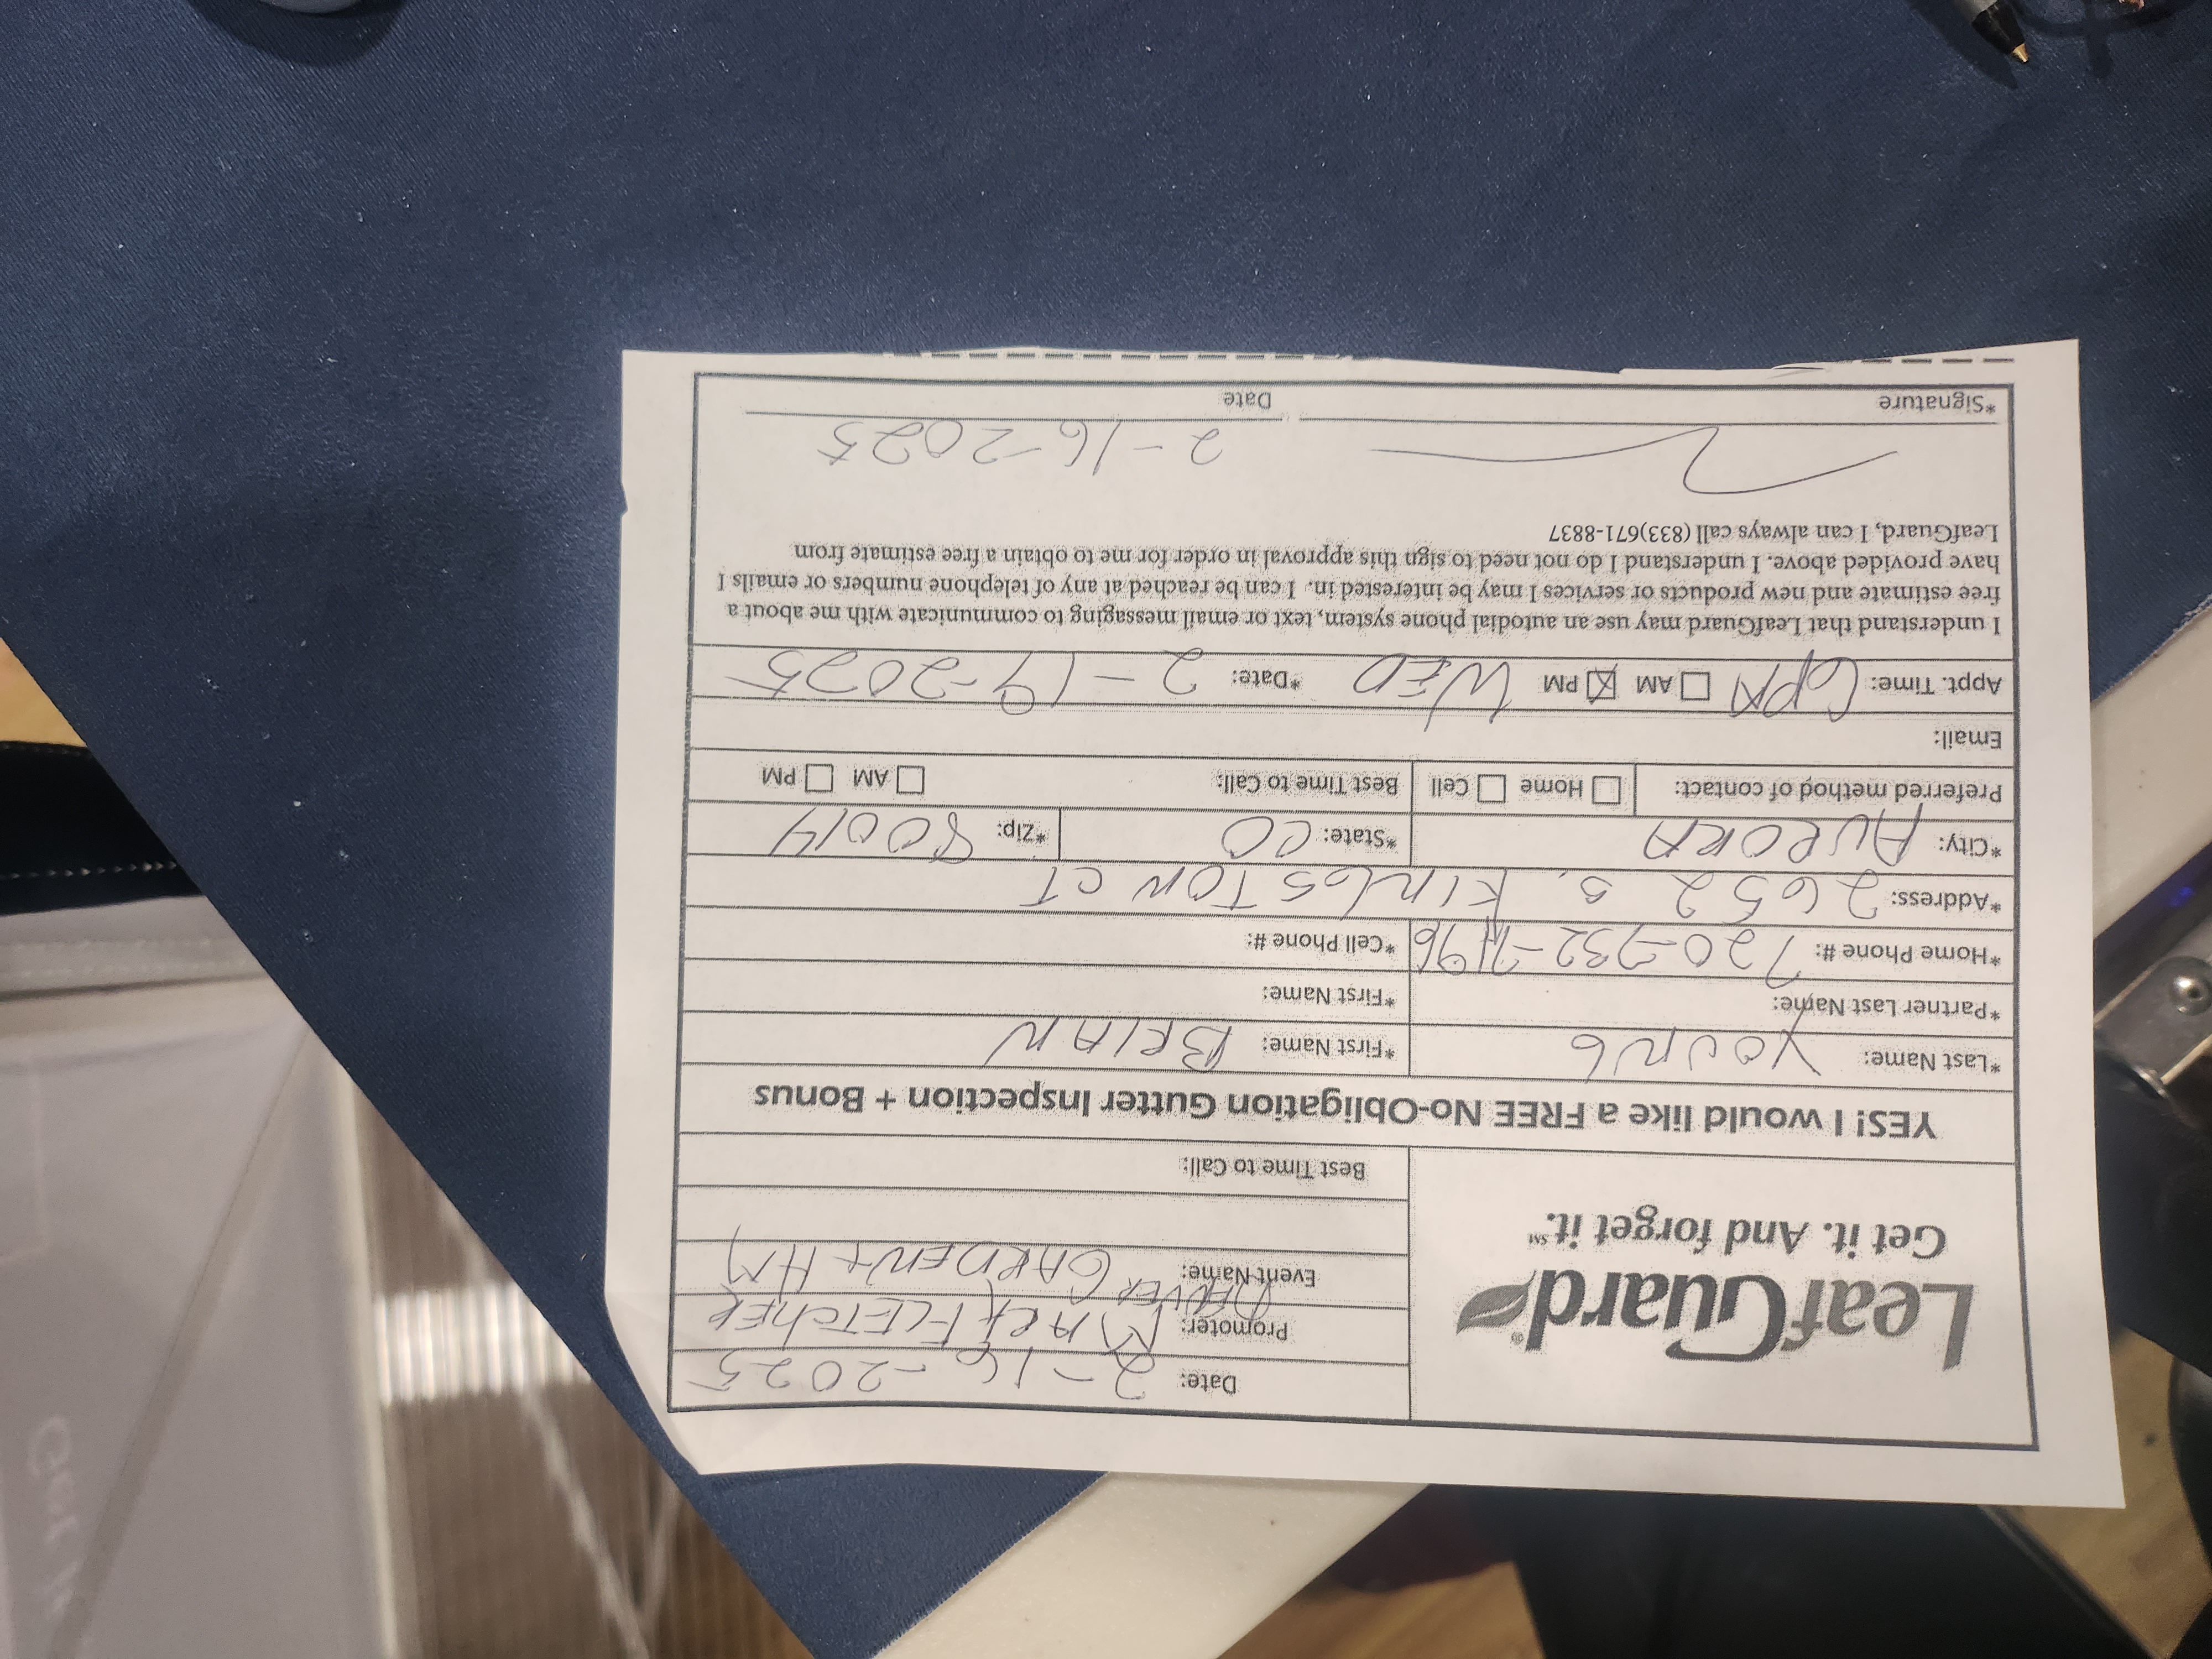 Get it
LeafGuard®
Get it. And forget it.℠
Date: 2-16-2025
Promoter: MARK FLETCHER
Event Name: DENVER GARDEN & HM
Best Time to Call:
YES! I would like a FREE No-Obligation Gutter Inspection + Bonus
*Last Name: YOUNG *First Name: BRIAN
*Partner Last Name: *First Name:
*Home Phone #: 720-932- *Cell Phone #:
*Address: 2652 S. KINGSTON CT
*City: AURORA *State: CO *Zip: 80014
Preferred method of contact: ☐ Home ☐ Cell Best Time to Call: ☐ AM ☐ PM
Email:
Appt. Time: 6PM ☐ AM ☒ PM WED *Date: 2-19-2025
I understand that LeafGuard may use an autodial phone system, text or email messaging to communicate with me about a
free estimate and new products or services I may be interested in. I can be reached at any of telephone numbers or emails I
have provided above. I understand I do not need to sign this approval in order for me to obtain a free estimate from
LeafGuard, I can always call (833)671-8837
2-16-2025
*Signature Date